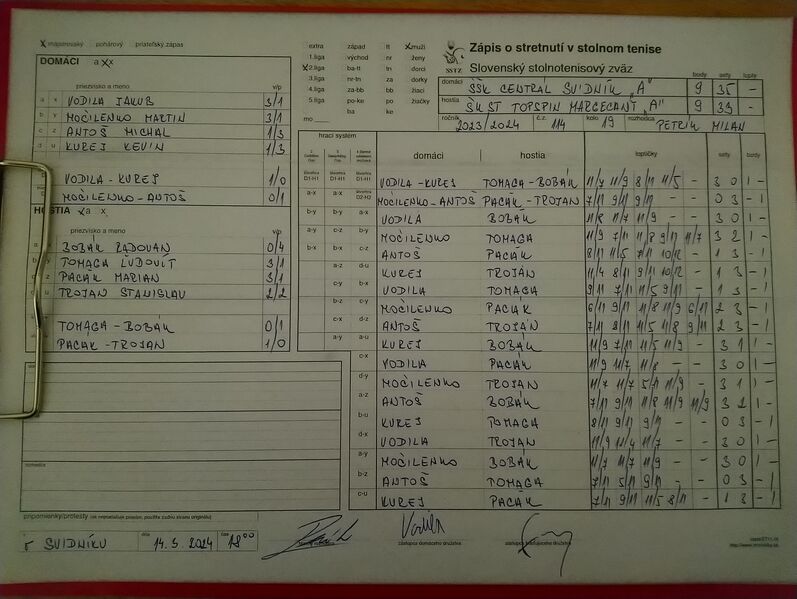 x majstrovský pohárový priateľský zápas
DOMÁCI a x x
priezvisko a meno v/p
a x VODILA JAKUB 3/1
b y MOČILENKO MARTIN 3/1
c z ANTOŠ MICHAL 1/3
d u KUREJ KEVIN 1/3
VODILA - KUREJ 1/0
MOČILENKO - ANTOŠ 0/1
HOSTIA a x
priezvisko a meno v/p
BOBÁK RADOVAN 0/4
TOMAGA ĽUDOVÍT 3/1
PACÁK MARIAN 3/1
TROJAN STANISLAV 2/2
TOMAGA - BOBÁK 0/1
PACAK - TROJAN 1/0
rozhodca
pripomienky/protesty
v SVIDNÍKU dňa 14. 3. 2024 čas 18 00
extra západ tt x muži
1.liga východ nr ženy
x 2.liga ba-tt tn dorci
3.liga nr-tn za dorky
4.liga za-bb bb žiaci
5.liga po-ke po žiačky
mo ba ke
SSTZ
Zápis o stretnutí v stolnom tenise
Slovenský stolnotenisový zväz
body sety lopty
domáci ŠŠK CENTRÁL SVIDNÍK „A" 9 35 -
hostia ŠK ST TOPSPIN MARGECANY „A" 9 33 -
ročník 2023/2024 č.z. 114 kolo 19 rozhodca PETRÍK MILAN
hrací systém domáci hostia loptičky sety body
VODILA - KUREJ TOMAGA - BOBÁK 11/7 11/9 8/11 11/5 - 3 0 1 -
MOČILENKO - ANTOŠ PACÁK - TROJAN 7/11 9/11 9/11 - - 0 3 - 1
b-y VODILA BOBÁK 11/8 11/7 11/9 - - 3 0 1 -
MOČILENKO TOMAGA 11/9 7/11 11/8 9/11 11/7 3 2 1 -
ANTOŠ PACÁK 8/11 11/5 7/11 10/12 - 1 3 - 1
KUREJ TROJAN 11/4 8/11 9/11 10/12 - 1 3 - 1
VODILA TOMAGA 9/11 7/11 11/5 9/11 - 1 3 - 1
MOČILENKO PACÁK 6/11 9/11 11/8 11/9 6/11 2 3 - 1
ANTOŠ TROJÁN 7/11 8/11 11/5 11/8 9/11 2 3 - 1
KUREJ BOBÁK 11/9 7/11 11/5 11/9 - 3 1 1 -
c-x VODILA PACÁK 11/9 11/7 11/8 - - 3 0 1 -
d-y MOČILENKO TROJAN 11/7 11/7 5/11 11/9 - 3 1 1 -
a-z ANTOŠ BOBÁK 7/11 9/11 11/8 11/9 11/9 3 2 1 -
b-u KUREJ TOMAGA 8/11 9/11 9/11 - - 0 3 - 1
d-x VODILA TROJAN 11/9 12/10 11/7 - - 3 0 1 -
a-y MOČILENKO BOBÁK 11/7 11/7 11/9 - - 3 0 1 -
b-z ANTOŠ TOMAGA 7/11 5/11 9/11 - - 0 3 - 1
c-u KUREJ PACAK 7/11 9/11 11/5 8/11 - 1 3 - 1
zástupca domáceho družstva